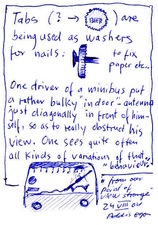 Tabs (? → BEER) are
being used as washers
for nails: to fix
paper etc..
One driver of a minibus put
a rather bulky "indoor" antenna
just diagonally in front of him-
self, so as to really obstruct his
view. One sees quite often
all kinds of variations of that
"behaviour"*
* from our
point of
view strange
24 VIII
Addis